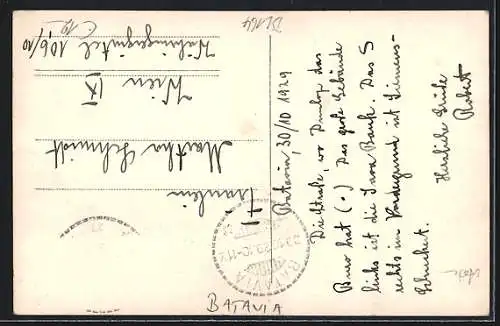 Batavia, 30/10 1929
Die Straße, wo Dunlop das
Buro hat (•) Das große Gebäude
links ist die Java Bank. Das S
rechts im Vordergrund ist Siemens-
Schuckert.
Herzliche Grüße
Robert
Fräulein
Martha Schmidt
Wien IX
Währingergürtel 106/10
BATAVIA
BATAVIA